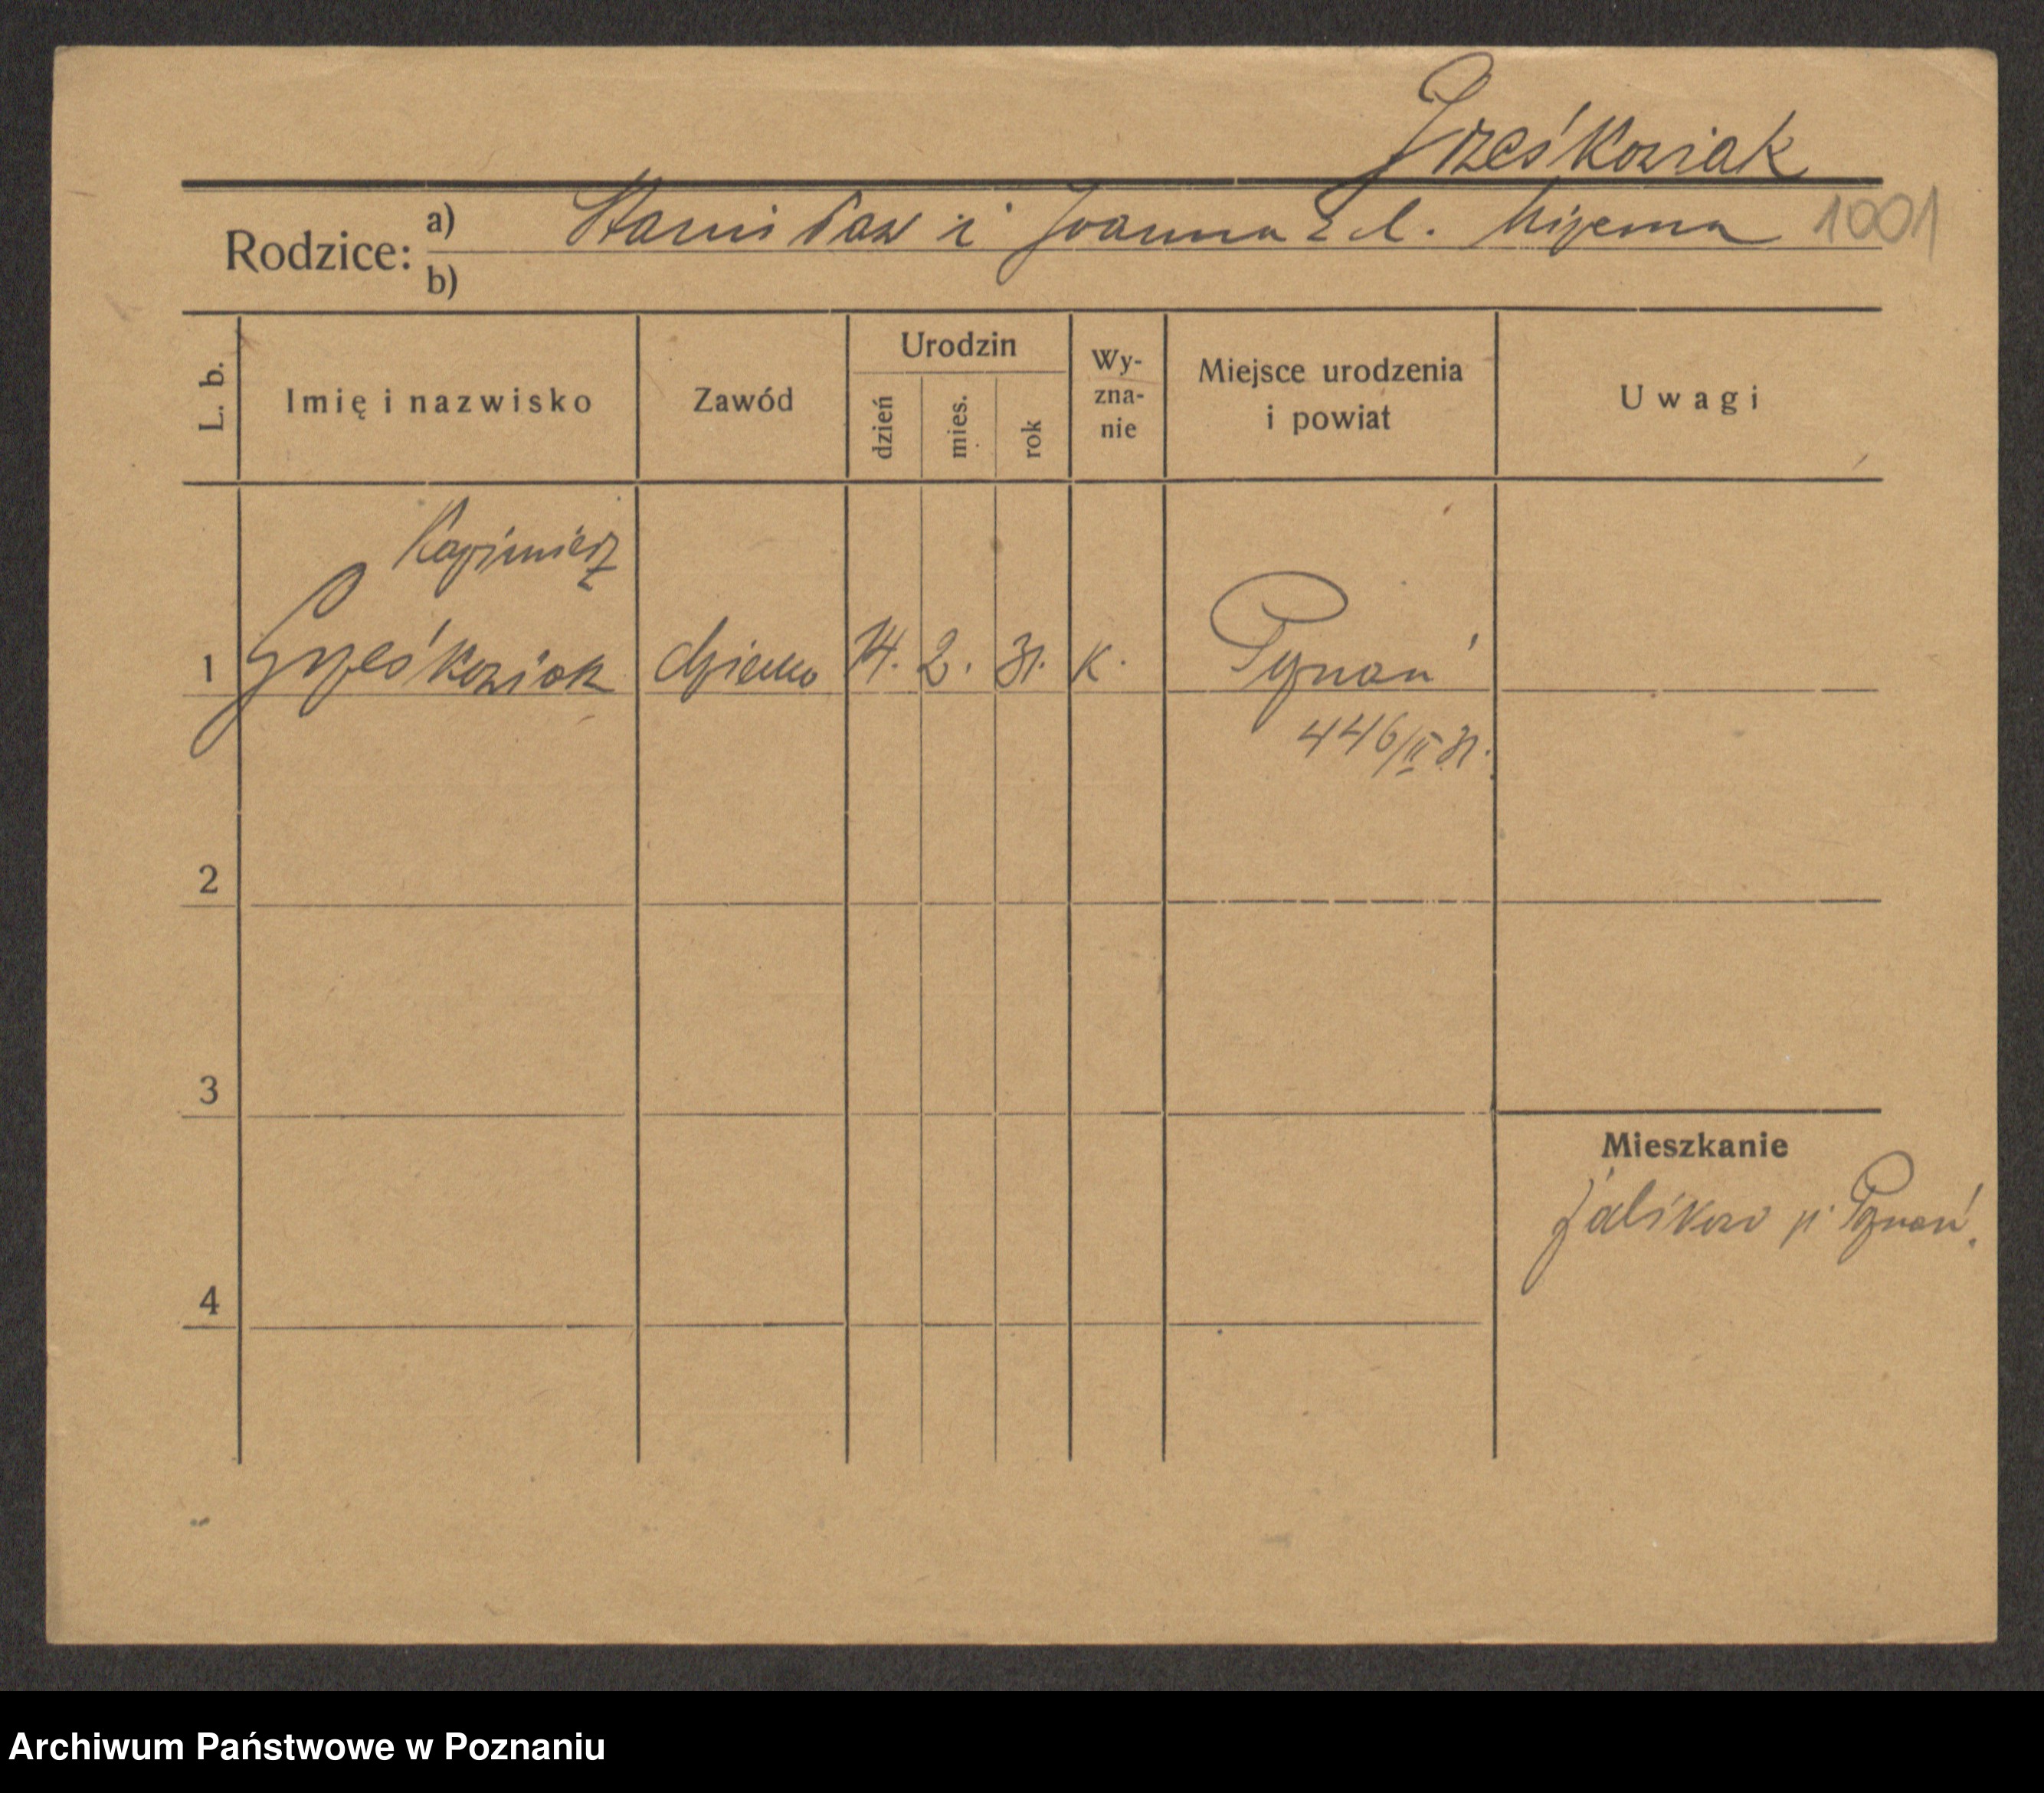 Grześkowiak
Rodzice: a) Stanisław i Joanna z d.
1001
b)
L. b.
Imię i nazwisko
Zawód
Urodzin
dzień
mies.
rok
Wy-
zna-
nie
Miejsce urodzenia
i powiat
Uwagi
Kazimierz
1 Grześkowiak dziecko 14. 2. 31. K. Poznań
446/II 31.
2
3
Mieszkanie
Żabikowo p. Poznań.
4
Archiwum Państwowe w Poznaniu